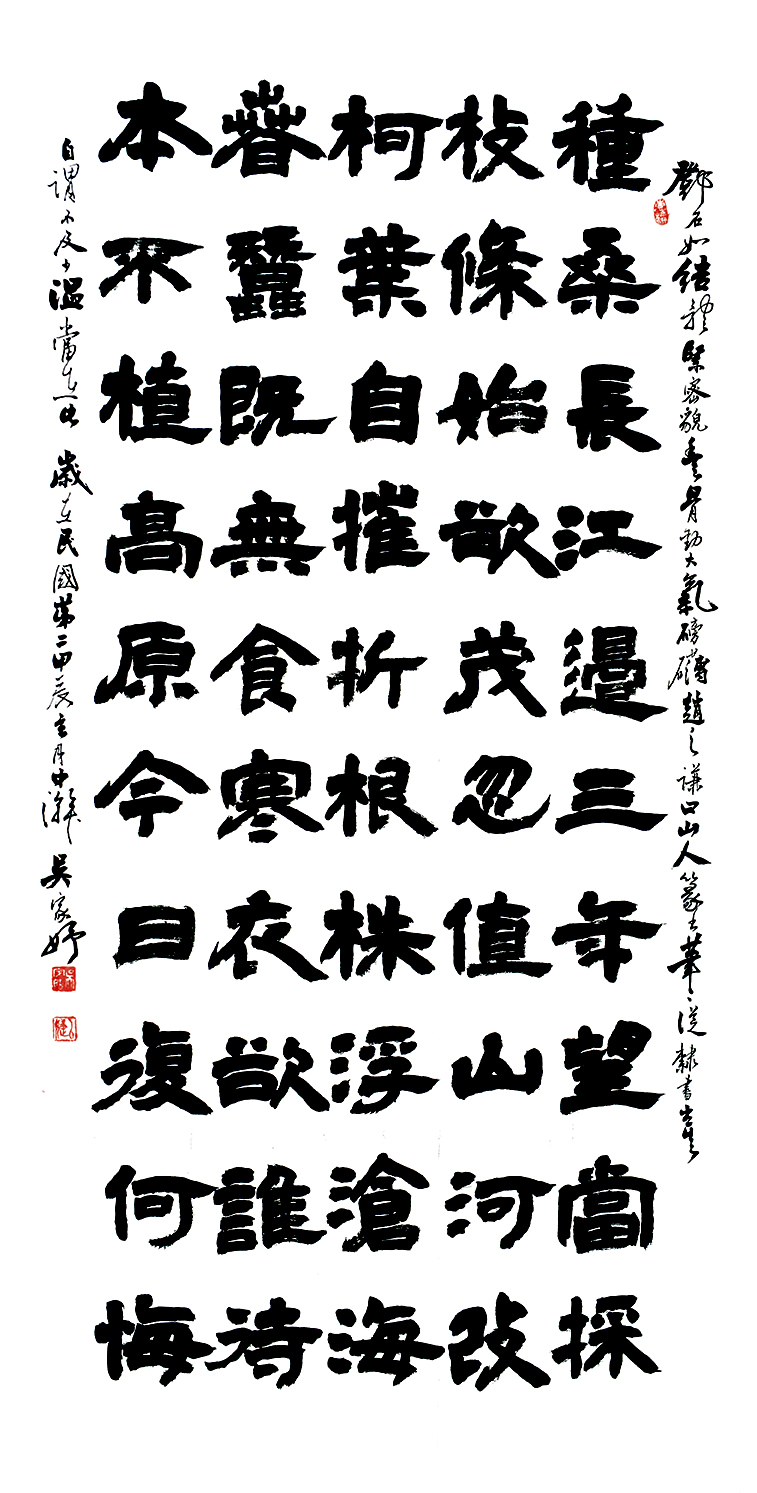 鄧石如結體緊密貌豐骨勁大氣磅礡趙之謙曰山人篆書筆筆從隸書出其
種桑長江邊三年望當採
枝條始欲茂忽值山河改
柯葉自摧折根株浮滄海
春蠶既無食寒衣欲誰待
本不植高原今日復何悔
自謂不及少溫當在此 歲在民國第二甲辰玄月中澣 吳家妤